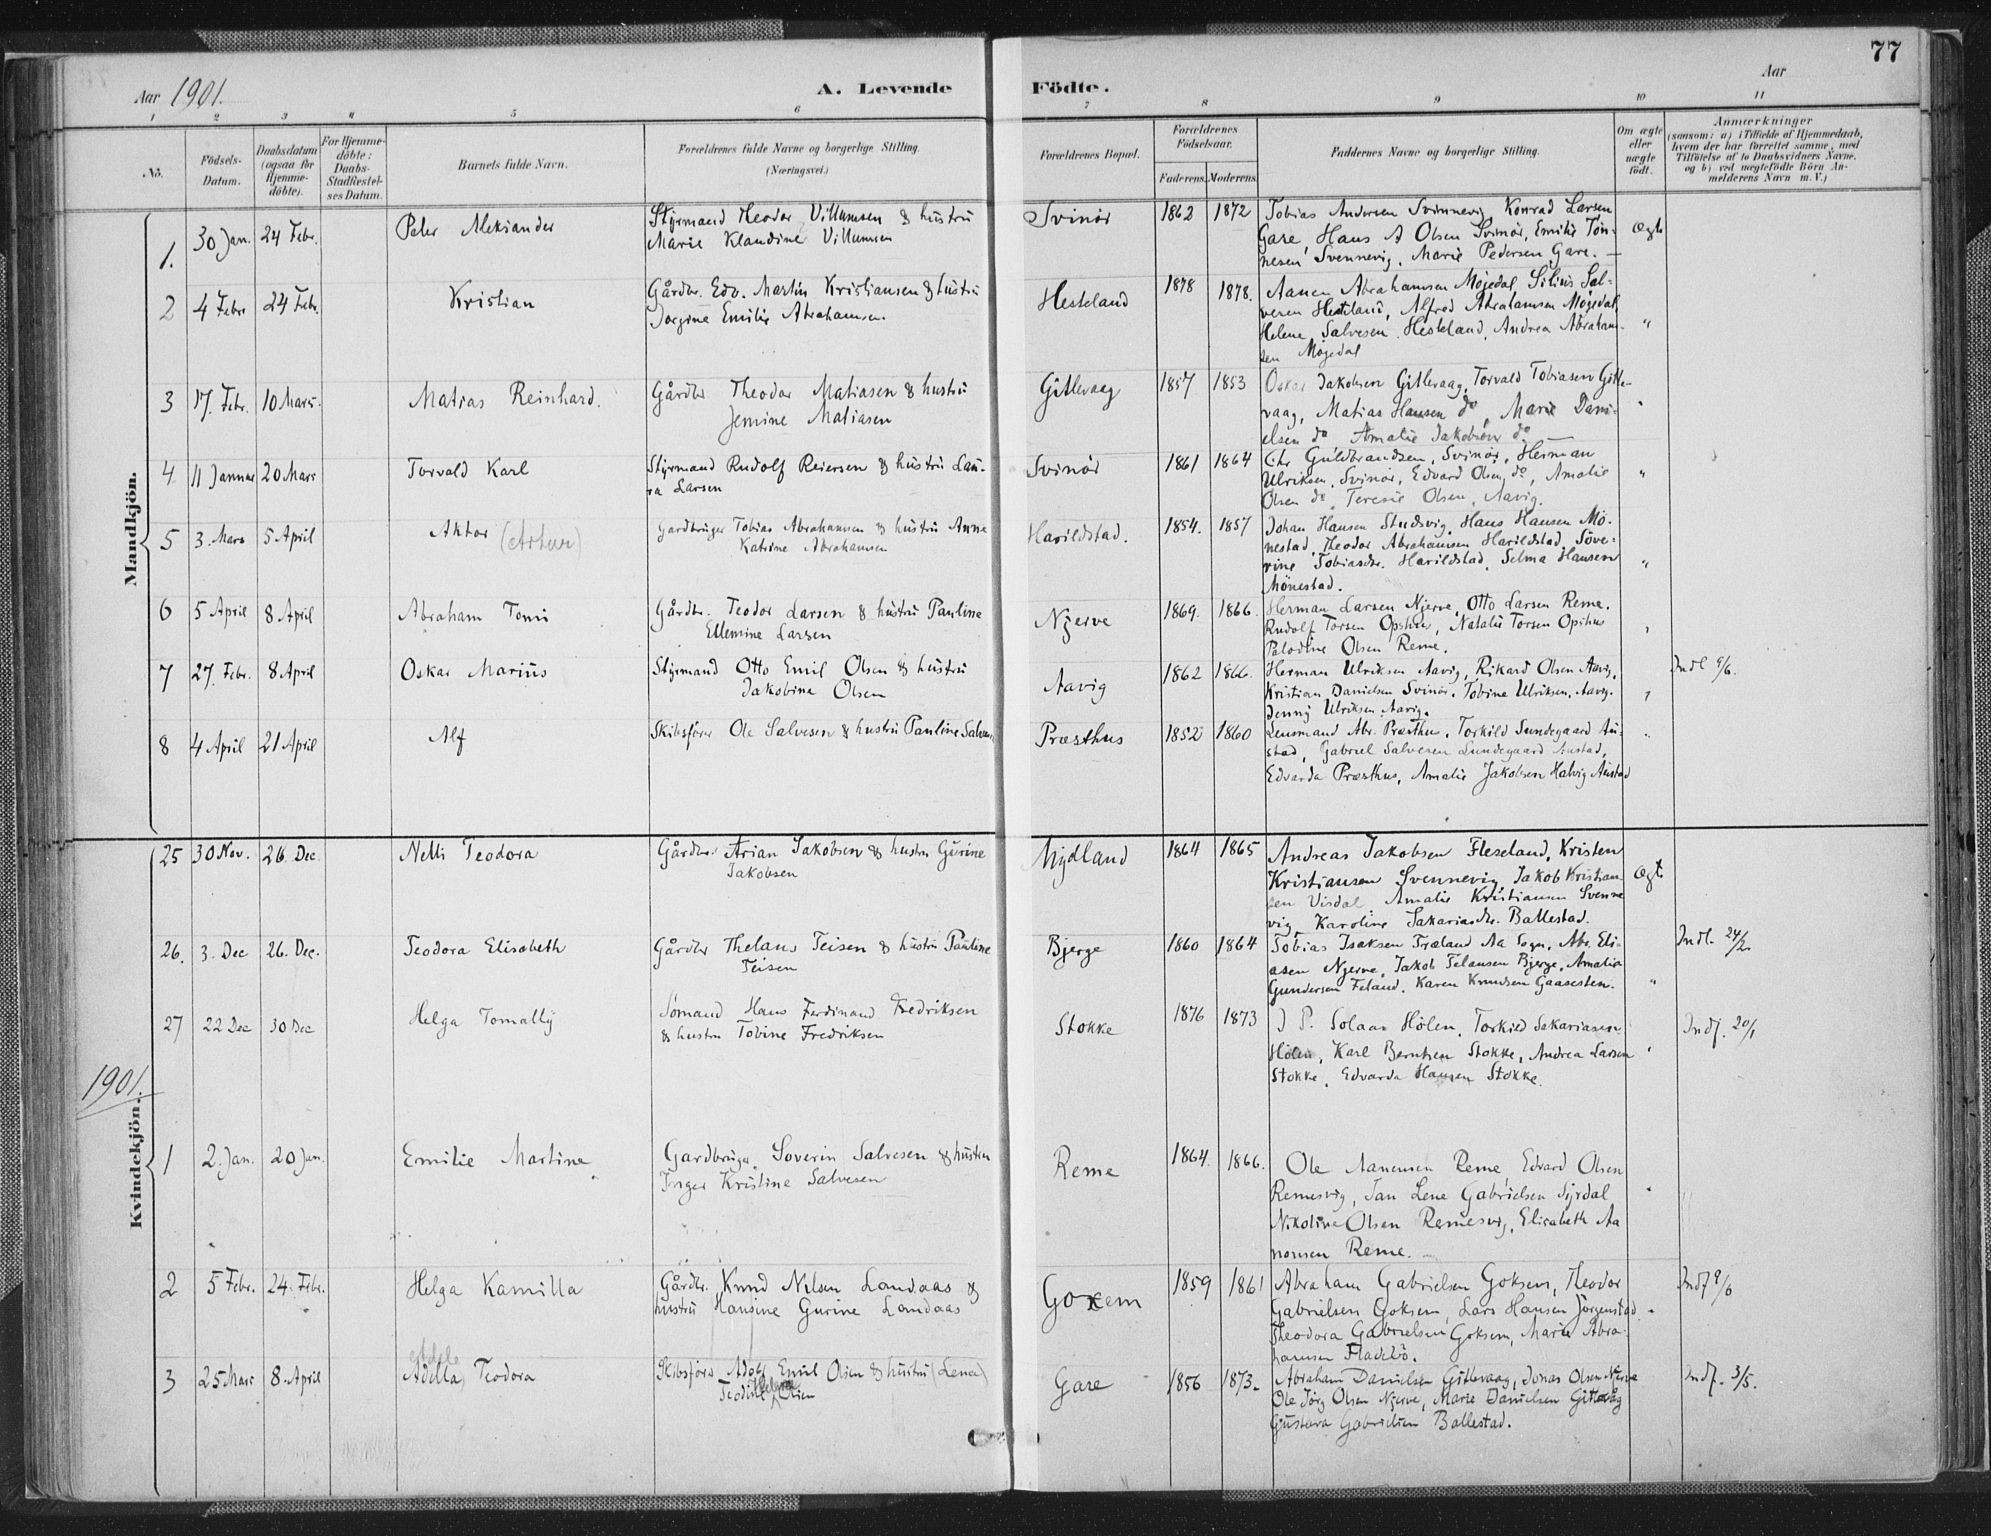 77
Aar 1901.
A. Levende Födte.
Aar
1 2 3 4 5 6 7 8 9 10 11
No.
Födsels-Datum.
Daabsdatum (ogsaa for Hjemme-döbte).
For Hjemme-döbte: Daabs-Stadfæstel-ses Datum.
Barnets fulde Navn.
Forældrenes fulde Navne og borgerlige Stilling.
(Næringsvei.)
Forældrenes Bopæl.
Forældrenes Födselsaar.
Faderens. Moderens.
Faddernes Navne og borgerlige Stilling.
Om ægte eller uægte födt.
Anmærkninger
(saasom: a) i Tilfælde af Hjemmedaab,
hvem der har forrettet samme, med
Tilföielse af to Daabsvidners Navne,
og b) ved uægtefödte Börn An-
melderens Navn m. V.)
Mandkjön.
1. 30 Jan. 24 Febr. Peter Aleksander
Styrmand Theodor Villumsen & hustru
Marie Klaudine Villumsen
Svinör 1862 1872
Tobias Andersen Svennevig, Konrad Larsen
Gare, Hans A Olsen Svinör, Emilie Tön-
nesen Svennevig, Marie Pedersen Gare. —
Ægte
2 4 Febr 24 Febr. Kristian
Gårdbr. Edv. Martin Kristiansen & hustru
Jorgine Emilie Abrahamsen
Hesteland 1878 1878.
Aanen Abrahamsen Møgedal, Silius Sal-
vesen Hesteland, Alfred Abrahamsen Møgedal,
Helene Salvesen Hesteland, Andrea Abraham-
sen Møgedal
"
3 17. Febr. 10 Mars. Matias Reinhard.
Gårdbr Theodor Matiasen & hustru
Jemine Matiasen
Gitlevaag 1857 1853
Oskar Jakobsen Gitlevaag, Torvald Tobiasen Gitle-
vaag, Matias Hansen do, Marie Dani-
elsen do, Amalie Jakobsen do
"
4 11 Januar 20 Mars Torvald Karl
Styrmand Rudolf Reiersen & hustru Lau-
ra Larsen
Svinör 1861 1864
Chr Guldbrandsen, Svinör, Herman
Ulriksen, Svinör, Edvard Olsen do, Amalie
Olsen do, Teresie Olsen, Aavig.
"
5 3. Mars 5 April Aktor (Artur)
Gardbruger Tobias Abrahamsen & hustru Anne
Katrine Abrahamsen
Harildstad. 1854. 1857
Johan Hansen Studsvig, Hans Hansen Mö-
nestad, Theodor Abrahamsen Harildstad, Söve-
rine Tobiasdtr. Harildstad, Selma Hansen
Mönestad.
"
6 5 April 8 April Abraham Tomi
Gårdbr. Teodor Larsen & hustru Pauline
Ellemine Larsen
Njerve 1869. 1866.
Herman Larsen Njerve, Otto Larsen Reme.
Rudolf Torsen Opshus, Natalie Torsen Opshus
Palodine Olsen Reme.
"
7 27. Febr. 8 April Oskar Marius
Styrmand Otto Emil Olsen & hustru
Jakobine Olsen
Aavig 1862 1866.
Herman Ulriksen Aavig, Rikard Olsen Aavig,
Kristian Danielsen Svinör, Tobine Ulriksen, Aavig.
Jenny Ulriksen Aavig.
"
8 4 April 21 April Alf
Skibsförer Ole Salvesen & hustru Pauline Salvesen
Præsthus 1852 1860
Lensmand Abr. Præsthus, Torkild Lundegaard Au-
stad, Gabriel Salvesen Lundegaard Austad,
Edvarda Præsthus, Amalie Jakobsen Halvig Austad
"
Kvindekjön.
25 30 Nov. 26 Dec. Nelli Teodora
Gårdbr. Arian Jakobsen & hustru Gurine
Jakobsen
Mydland 1864 1865
Andreas Jakobsen Fleseland, Kristen
Kristiansen Svennevig, Jakob Kristian-
sen Visdal, Amalie Kristiansen Svenne
vig, Karoline Sakariasdtr. Ballestad.
Ægt.
26. 3. Dec 26. Dec. Teodora Elisabeth
Gårdbr Thelaus Teisen & hustru Pauline
Teisen
Bjerge 1860 1864
Tobias Isaksen Træland Aa Sogn, Abr. Eli-
asen Njerve, Jakob Telausen Bjerge, Amalie
Gundersen Feland, Karen Knudsen Gaasesten.
"
27 22 Dec 30 Dec Helga Tomally
Sømand Hans Ferdinand Fredriksen
& hustru Tobine Fredriksen
Stokke 1876 1873
J P. Solaas Hölen, Torkild Sakariasen
Hölen, Karl Berntsen Stokke, Andrea Larsen
Stokke, Edvarda Hansen Stokke.
"
Indf. 20/1
1901.
1 2. Jan. 20 Jan. Emilie Martine
Gardbruger Soverin Salvesen & hustru
Inger Kristine Salvesen
Reme 1864. 1866.
Ole Aanensen Reme, Edvard Olsen
Remesvig, Jan Lene Gabrielsen Syrdal
Nikoline Olsen Remesvig, Elisabeth Aa
nonsen Reme. —
"
2 5 Febr. 24. Febr. Helga Kamilla
Gårdbr. Knud Nilsen Landaas &
hustru Hansine Gurine Landaas
Goxem 1859 1861
Abraham Gabrielsen Goksem, Theodor
Gabrielsen Goksem, Lars Hansen Jörgenstad
Theodora Gabrielsen Goksem, Marie Abra-
hamsen Fladebö.
"
3 25 Mars 8. April Adella Teodora
Skibsförer Adolf Emil Olsen & hustru (Lena)
Helene Olsen
Gare 1856 1873.
Abraham Danielsen Gitlevaag, Jonas Olsen Njerve
Ole Jörg Olsen Njerve, Marie Danielsen Gitlevåg
Gustava Gabrielsen Ballestad.
Indf. 3/5.